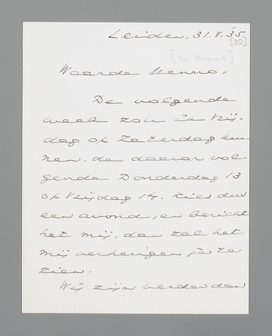 Leiden, 31.V.'35
[20]
Waarde Menno,
De volgende
week zou ik Vrij-
dag op Zaterdag kun-
nen, de daarop vol-
gende Donderdag 13
of Vrijdag 14. Kies dus
een avond, en bericht
het mij, dan zal het
mij verheugen je te
zien.
Wij zijn verder den